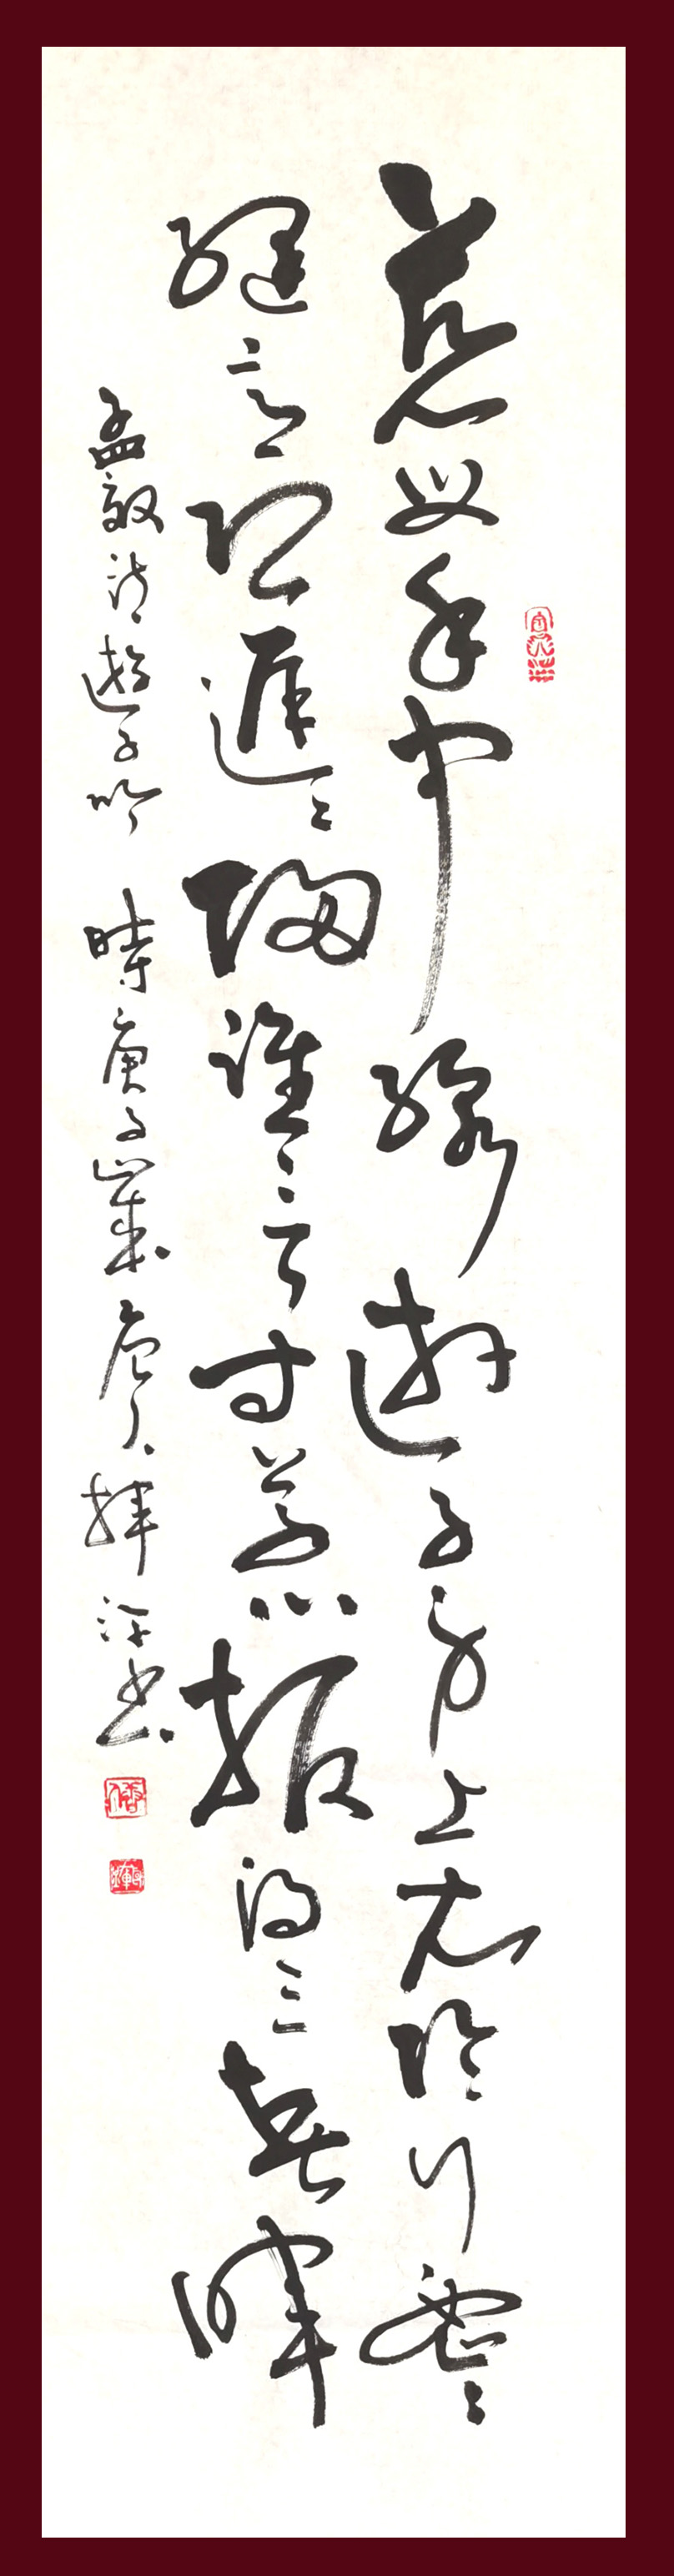 慈母手中線遊子身上衣臨行密々
縫意恐遲々歸誰言寸草心報得三春暉
孟郊詩遊子吟 時庚子歲 輝 書